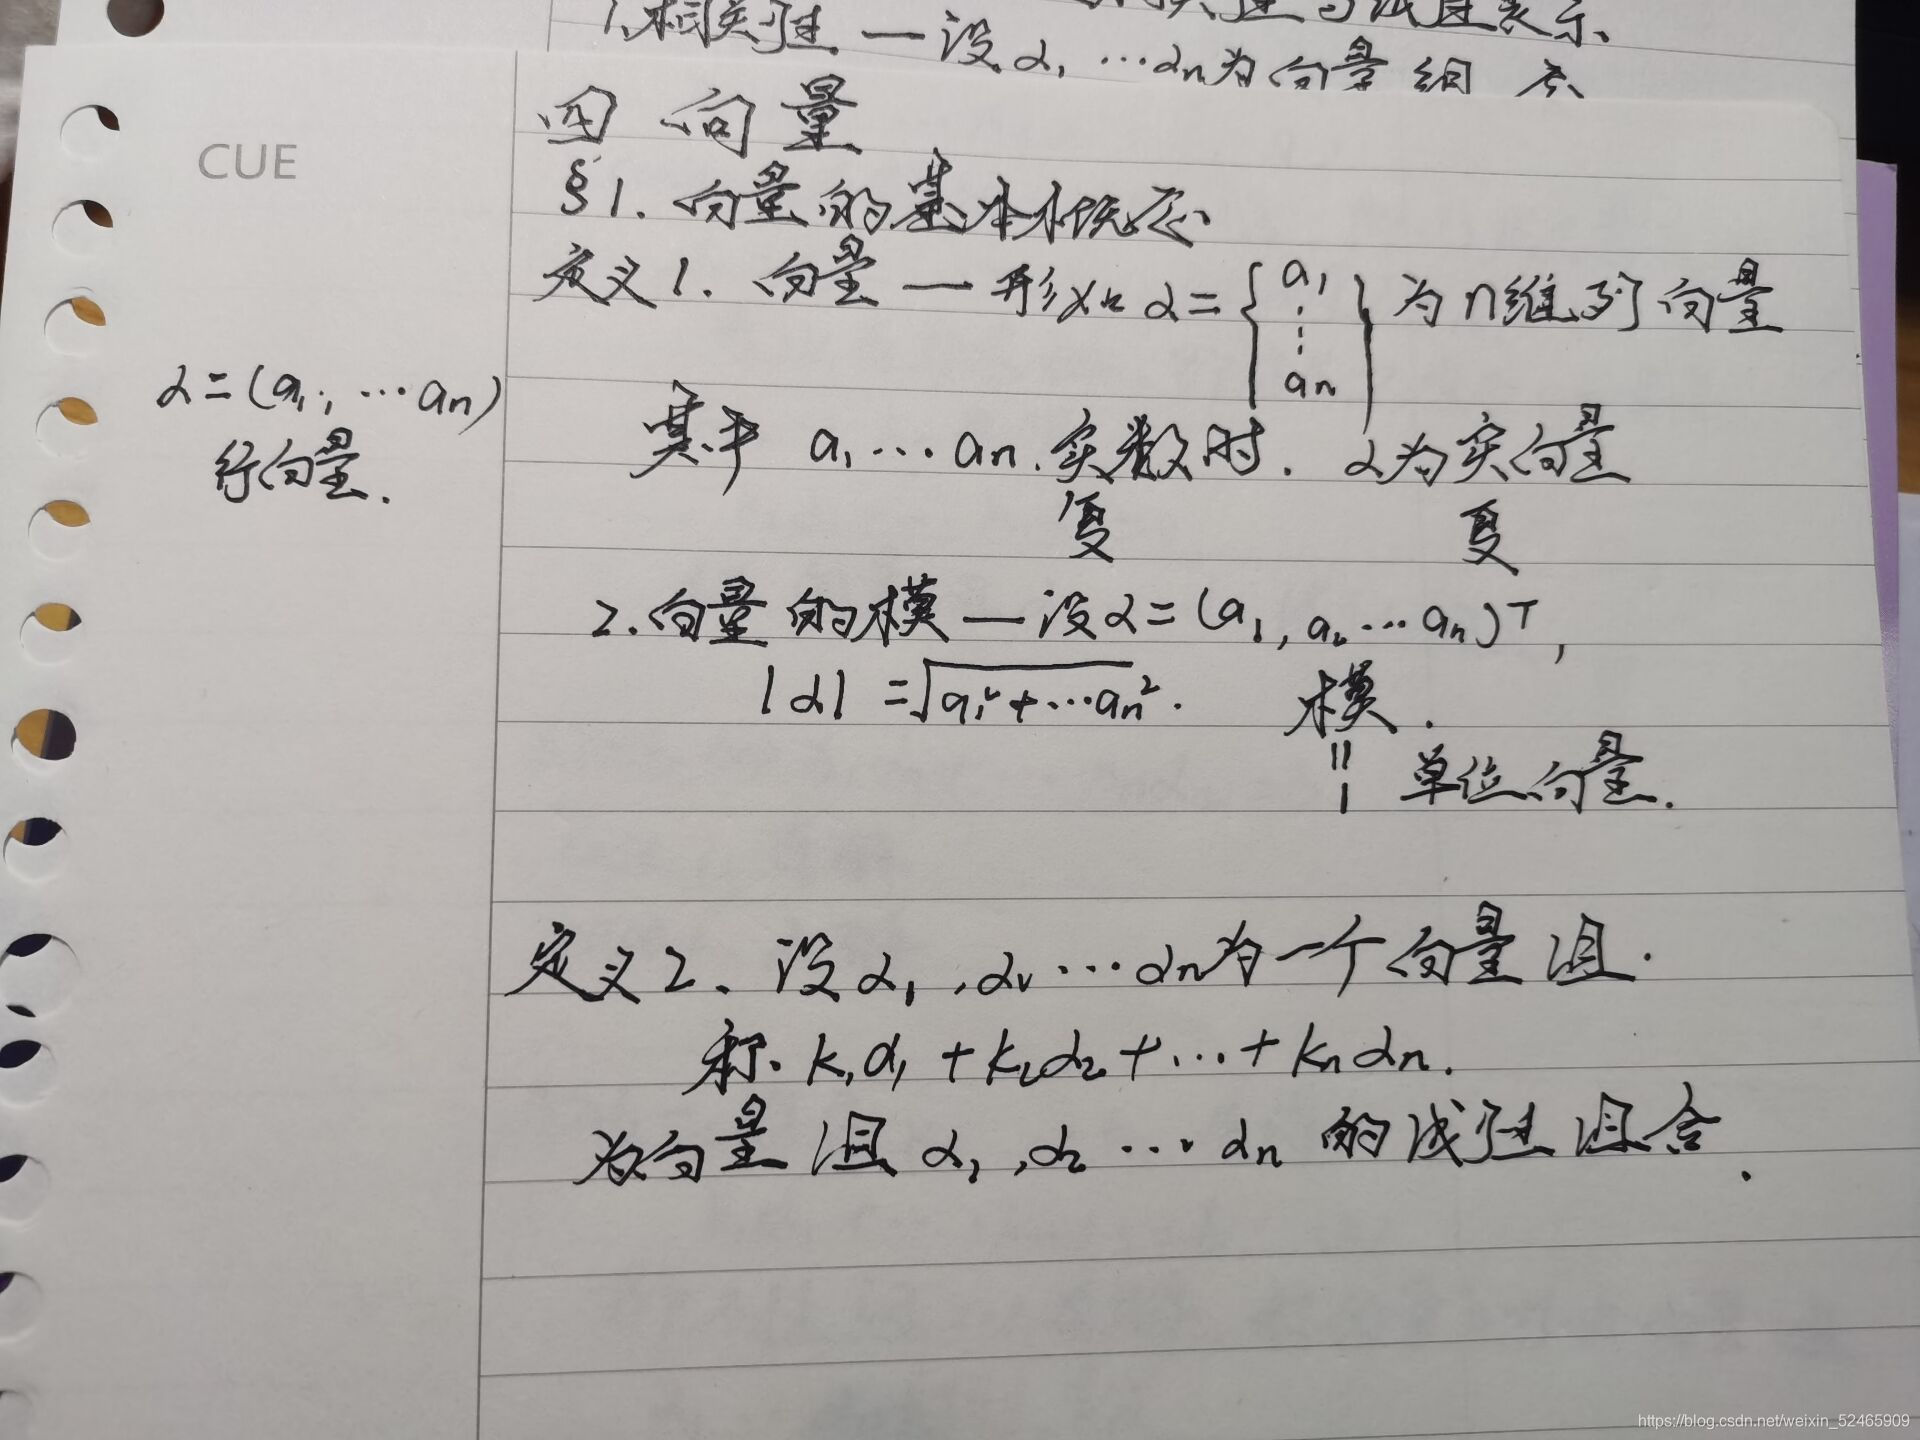 1.相关性 — 设α₁ ···αn为向量组
CUE
四 向量
§1. 向量的基本概念
定义1. 向量 — 形如 α = { a₁ ⋮ an } 为n维列向量
α = (a₁, ··· an)
行向量.
其中 a₁ ··· an. 实数时. α为实向量
复 复
2. 向量的模 — 设α = (a₁, a₂ ··· an)ᵀ,
|α| = √(a₁² + ···an²). 模.
= 1 单位向量.
定义2、设α₁, α₂ ··· αn为一个向量组.
称. k₁α₁ + k₂α₂ + ··· + knαn.
为向量组 α₁, α₂ ··· αn 的线性组合.
https://blog.csdn.net/weixin_52465909